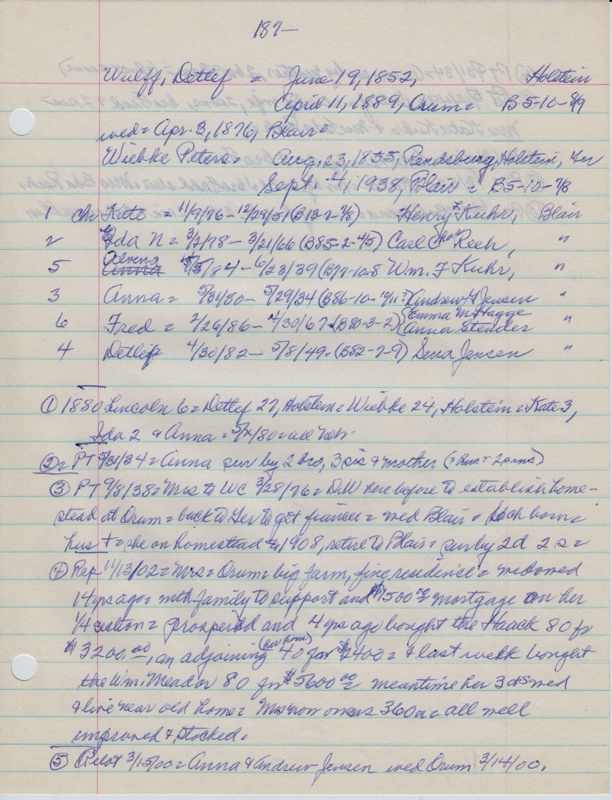 187—
Wulff, Detlef = June 19, 1852, Holstein
April 11, 1889, Orum = B-5-10-8/9
wed = Apr. 3, 1876, Blair =
Wiebke Peters = Aug. 23, 1855, Rendsburg, Holstein, Ger
Sept. 4, 1938, Blair = B-5-10-7/8
1 ch: Kate = 11/9/76 - 12/29/51 (B13-2-7/8) Henry F. Kuhr, Blair
2 Ida N = 3/2/78 - 3/21/66 (B85-2-4/5) Carl Reeh, "
5 Alvena 84 - 6/23/39 Wm. F Kuhr, "
3 Anna = 5/31/80 - 5/29/34 (B86-10- Andrew J Jensen "
6 Fred = 2/26/86 - 4/30/67 - (B80-3-2) {Emma M. Hagge Anna Stender "
4 Detlef 4/30/82 - 5/8/49. (B82-7-9) Sena Jensen "
① 1880 Lincoln 6 = Detlef 27, Holstein = Wiebke 24, Holstein = Kate 3,
Ida 2 & Anna = 5/ /80 = all Neb.
②= PT 5/31/34 = Anna sur by 2 bro, 3 sis & mother (& hus & 2 sons)
③ PT 9/8/38 = Mrs to WC 3/28/76 = DW here before to establish home-
stead at Orum = back to Ger to get fiancee = wed Blair = 6 ch born =
hus † = she on homestead 1908, retire to Blair = sur by 2d 2s =
④ Rep 11/13/02 = Mrs = Orum = big farm, fine residence = widowed
14 yrs ago = with family to support and $1500.00 mortgage on her
1/4 section = prospered and 4 yrs ago bought the Haack 80 for
$3200.00, an adjoining (her home) 40 for $2400 = & last week bought
the Wm. Meador 80 for $5600.00 = meantime her 3 ds wed
& live near old home = Mrs now owns 360a = all well
improved & stocked.
⑤ Pilot 3/15/00 = Anna & Andrew Jensen wed Orum 3/14/00.